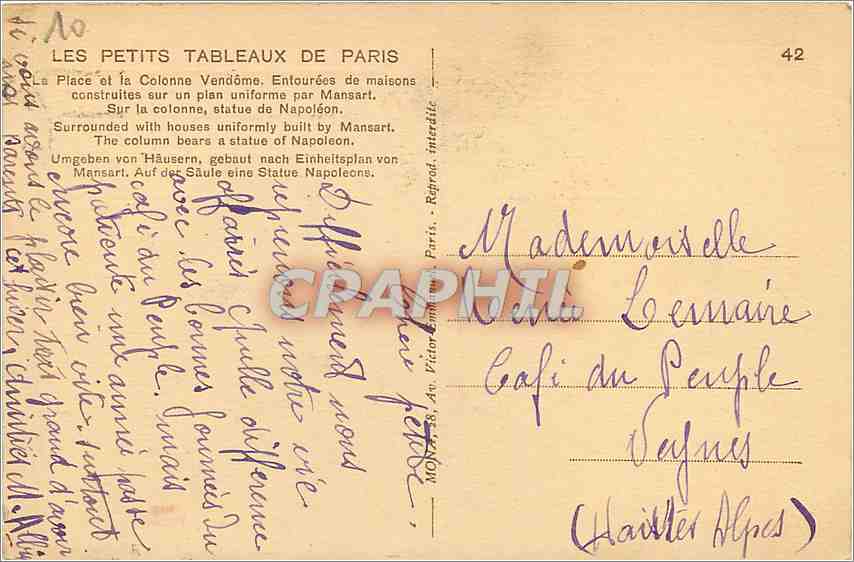 10
LES PETITS TABLEAUX DE PARIS
42
La Place et la Colonne Vendôme. Entourées de maisons
construites sur un plan uniforme par Mansart.
Sur la colonne, statue de Napoléon.
Surrounded with houses uniformly built by Mansart.
The column bears a statue of Napoleon.
Umgeben von Häusern, gebaut nach Einheitsplan von
Mansart. Auf der Säule eine Statue Napoleons.
MONA, 28, Av. Victor-Emmanuel Paris. - Reprod. interdite
CPARPHIL
Chère petite,
Difficilement nous
reprenons notre vie
d'affaires Quelle différence
avec les bonnes journées du
café du Peuple. mais
patiente une année passe
encore bien vite, surtout
si nous avons le plaisir très grand d'avoir
vos parents cet hiver, Amitiés
Mademoiselle
Lemaire
Café du Peuple
Veynes
(Hautes Alpes)